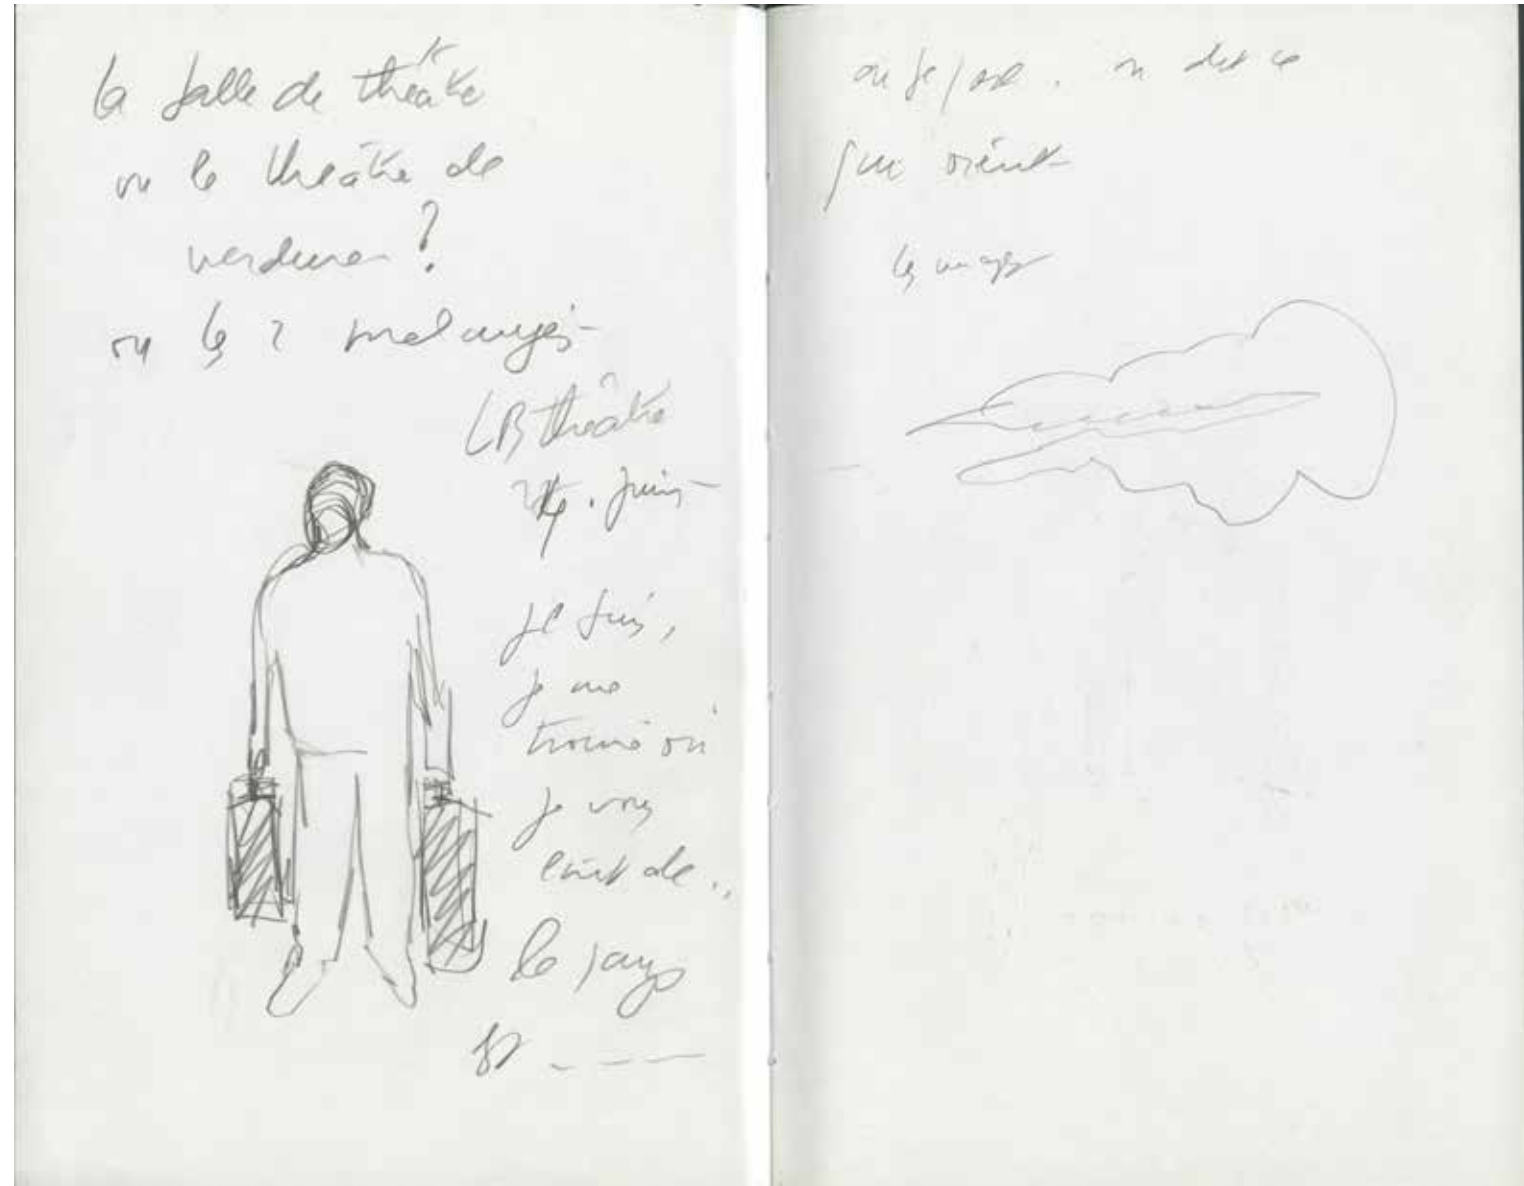 la salle de théâtre
ou le théâtre de
verdure ?
ou les 2 mélangés
LB théâtre
juin
je suis,
je me
trouve où
je vous
écris de..
le pays
est
ou je pose. on dit ce
qui vient
les nuages